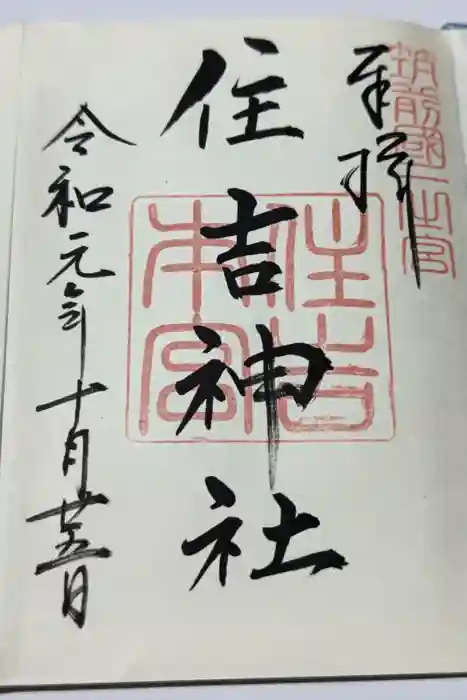 筑前國一之宮
奉拝
住吉神社
住吉
本宮
令和元年十月廿五日